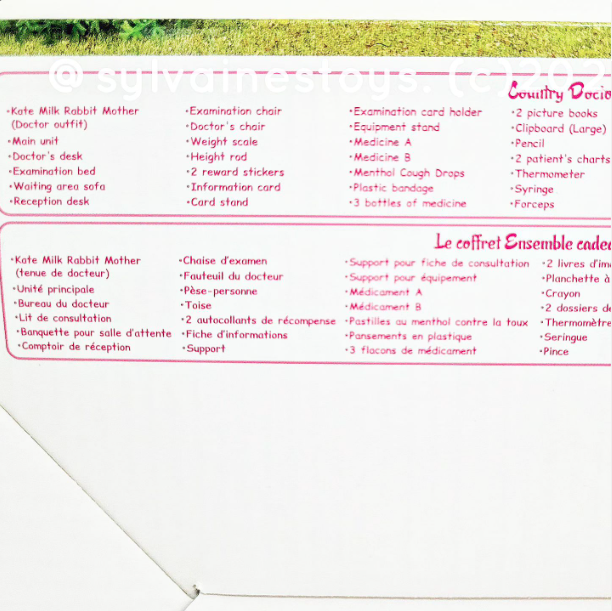 @ sylvainestoys. (c) 202
Country Docto
•Kate Milk Rabbit Mother
(Doctor outfit)
•Main unit
•Doctor's desk
•Examination bed
•Waiting area sofa
•Reception desk
•Examination chair
•Doctor's chair
•Weight scale
•Height rod
•2 reward stickers
•Information card
•Card stand
•Examination card holder
•Equipment stand
•Medicine A
•Medicine B
•Menthol Cough Drops
•Plastic bandage
•3 bottles of medicine
•2 picture books
•Clipboard (Large)
•Pencil
•2 patient's charts
•Thermometer
•Syringe
•Forceps
Le coffret Ensemble cadea
•Kate Milk Rabbit Mother
(tenue de docteur)
•Unité principale
•Bureau du docteur
•Lit de consultation
•Banquette pour salle d'attente
•Comptoir de réception
•Chaise d'examen
•Fauteuil du docteur
•Pèse-personne
•Toise
•2 autocollants de récompense
•Fiche d'informations
•Support
•Support pour fiche de consultation
•Support pour équipement
•Médicament A
•Médicament B
•Pastilles au menthol contre la toux
•Pansements en plastique
•3 flacons de médicament
•2 livres d'im
•Planchette à
•Crayon
•2 dossiers de
•Thermomètre
•Seringue
•Pince